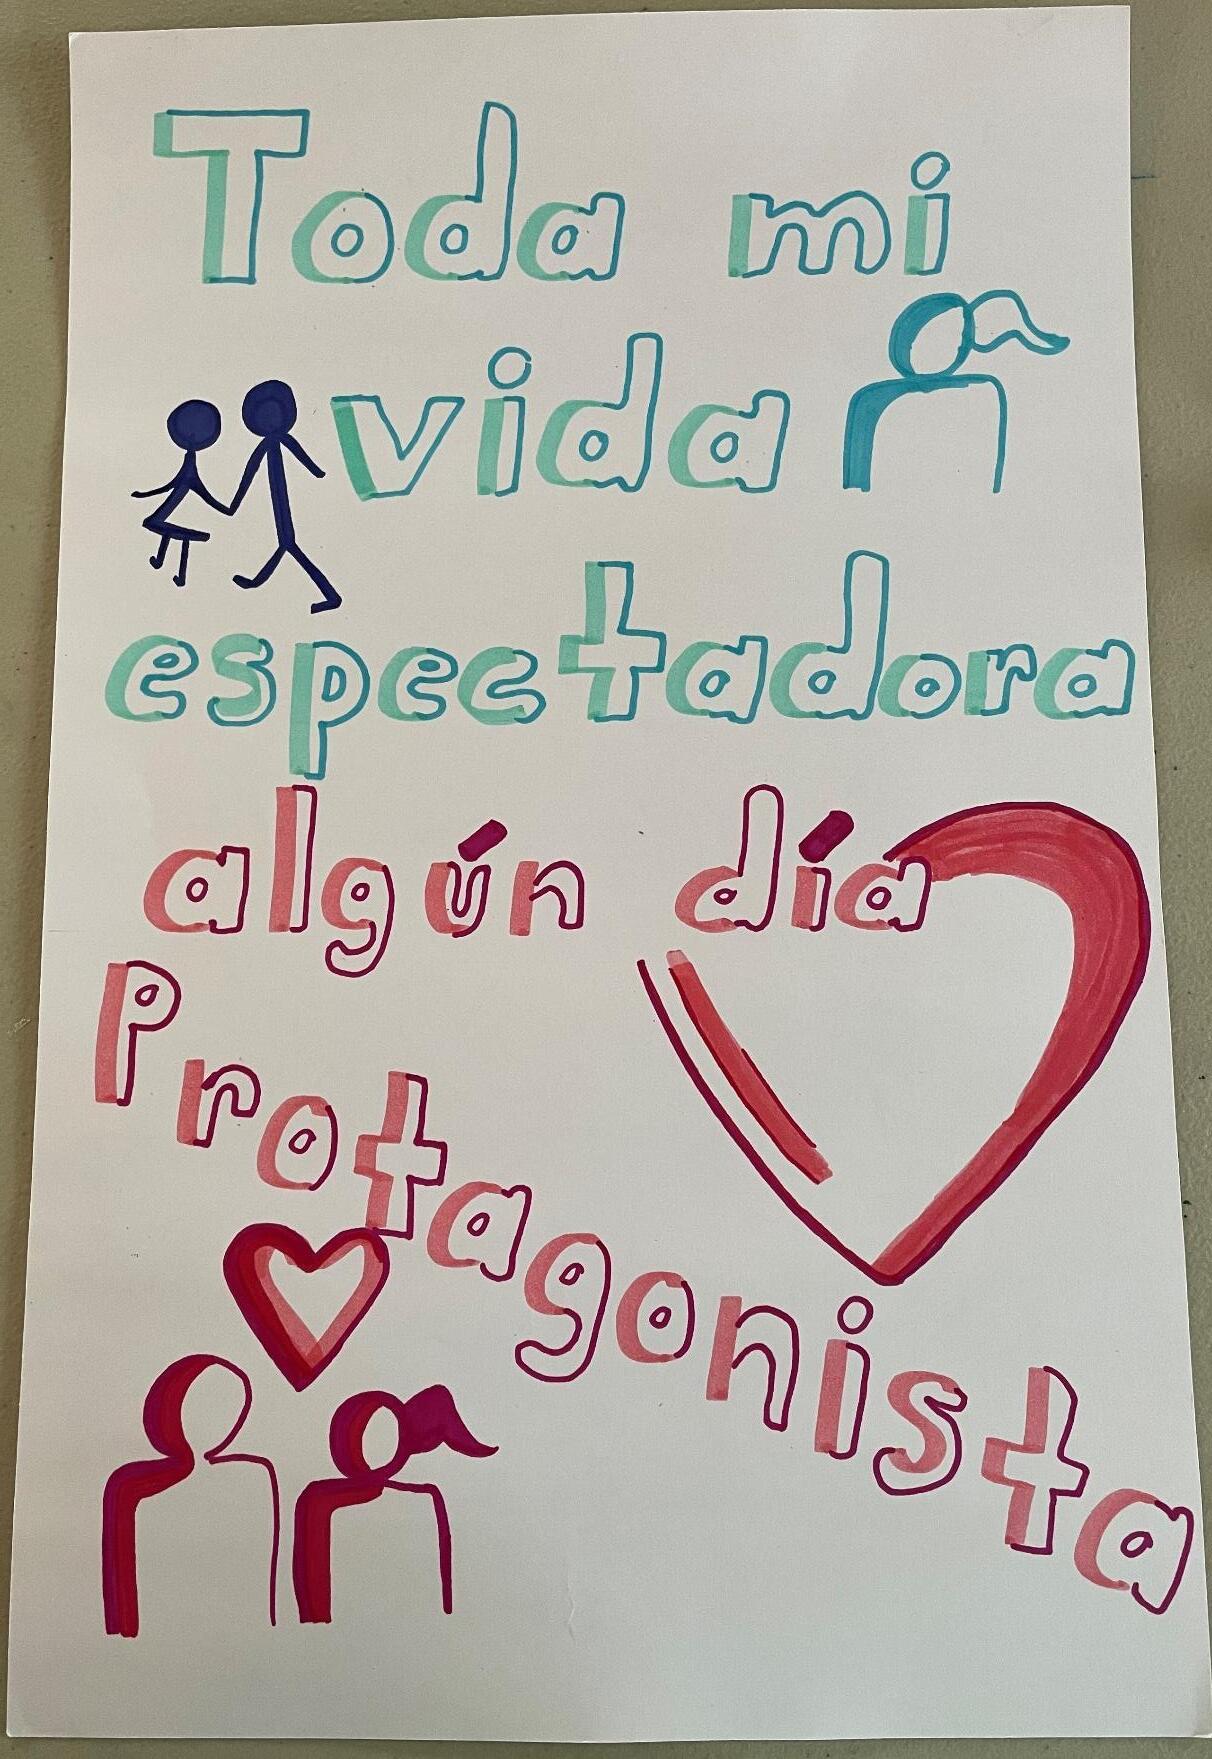 Toda mi
vida
espectadora
algún día
Protagonista